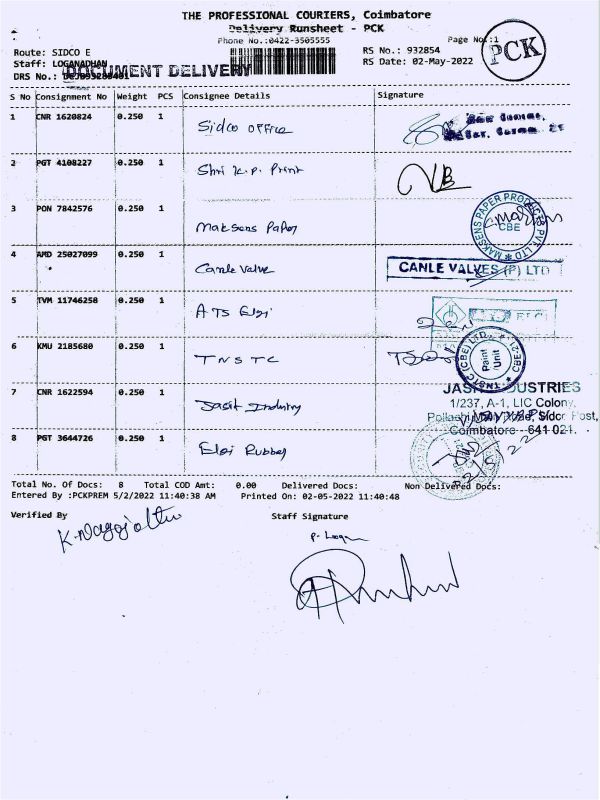 THE PROFESSIONAL COURIERS, Coimbatore
Delivery Runsheet - PCK
Phone No.:0422-3505555
Page No.:1
PCK
Route: SIDCO E
RS No.: 932854
Staff: LOGANADHAN
RS Date: 02-May-2022
DRS No.:
DOCUMENT DELIVERY
S No Consignment No Weight PCS Consignee Details Signature
1 CNR 1620824 0.250 1 Sidco OFFice
2 PGT 4108227 0.250 1 Shri K.P. Print
3 PON 7842576 0.250 1 Maksens Paper
MAKSENS PAPER PRODUCTS PVT LTD
CBE
4 AMD 25027099 0.250 1 Canle Valve
CANLE VALVES (P) LTD
5 TVM 11746258 0.250 1 ATS Elgi
6 KMU 2185680 0.250 1 TNSTC
TNSTC (CBE) LTD., CBE-21
Paint Unit
7 CNR 1622594 0.250 1 Jasit Industry
INDUSTRIES
1/237, A-1, LIC Colony,
Pollachi Main Road, Sidco Post,
Coimbatore - 641 021.
8 PGT 3644726 0.250 1 Elgi Rubber
Total No. Of Docs: 8 Total COD Amt: 0.00 Delivered Docs: Non Delivered Docs:
Entered By :PCKPREM 5/2/2022 11:40:38 AM Printed On: 02-05-2022 11:40:48
Verified By
Staff Signature